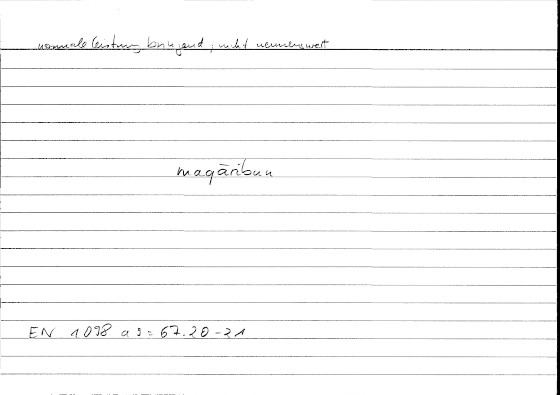 normale Leistung bringend, nicht nennenswert
maqāribun
EN 1098 a 9 = 67.20-21